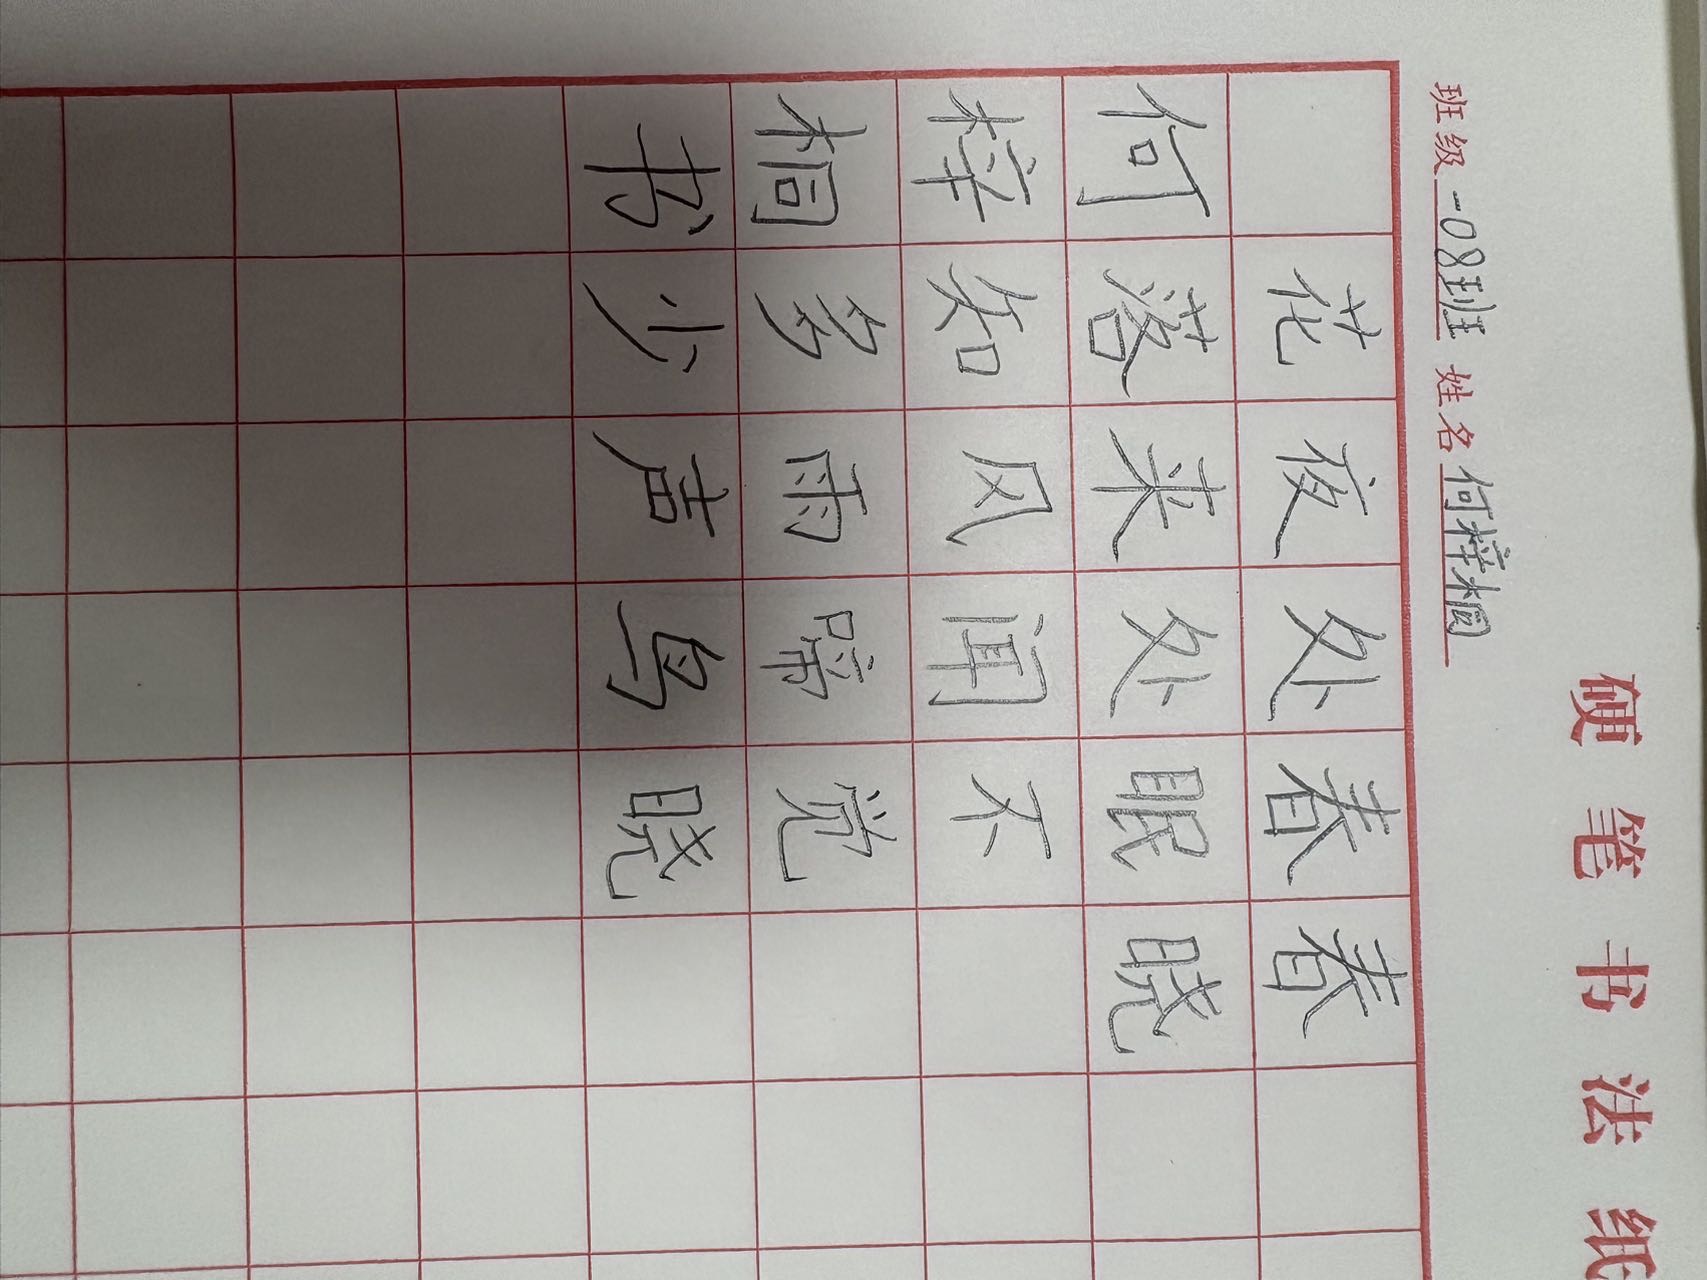 硬笔书法纸
班级 一08班 姓名 何梓桐
春晓
春眠不觉晓
处处闻啼鸟
夜来风雨声
花落知多少
何梓桐书